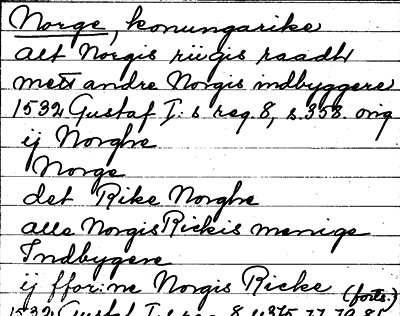 Norge, konungarike
alt Norgis riigis raadt
mett andre Norgis indbyggere
1532 Gustaf I: s reg. 8, s. 353. orig
ij Norghe
Norge
det Rike Norghe
alle Norgis Rickis menige
Indbygere
ij fforne Norgis Ricke (forts.)
1532 Gustaf I: s reg. 8 s 375, 77, 79, 81